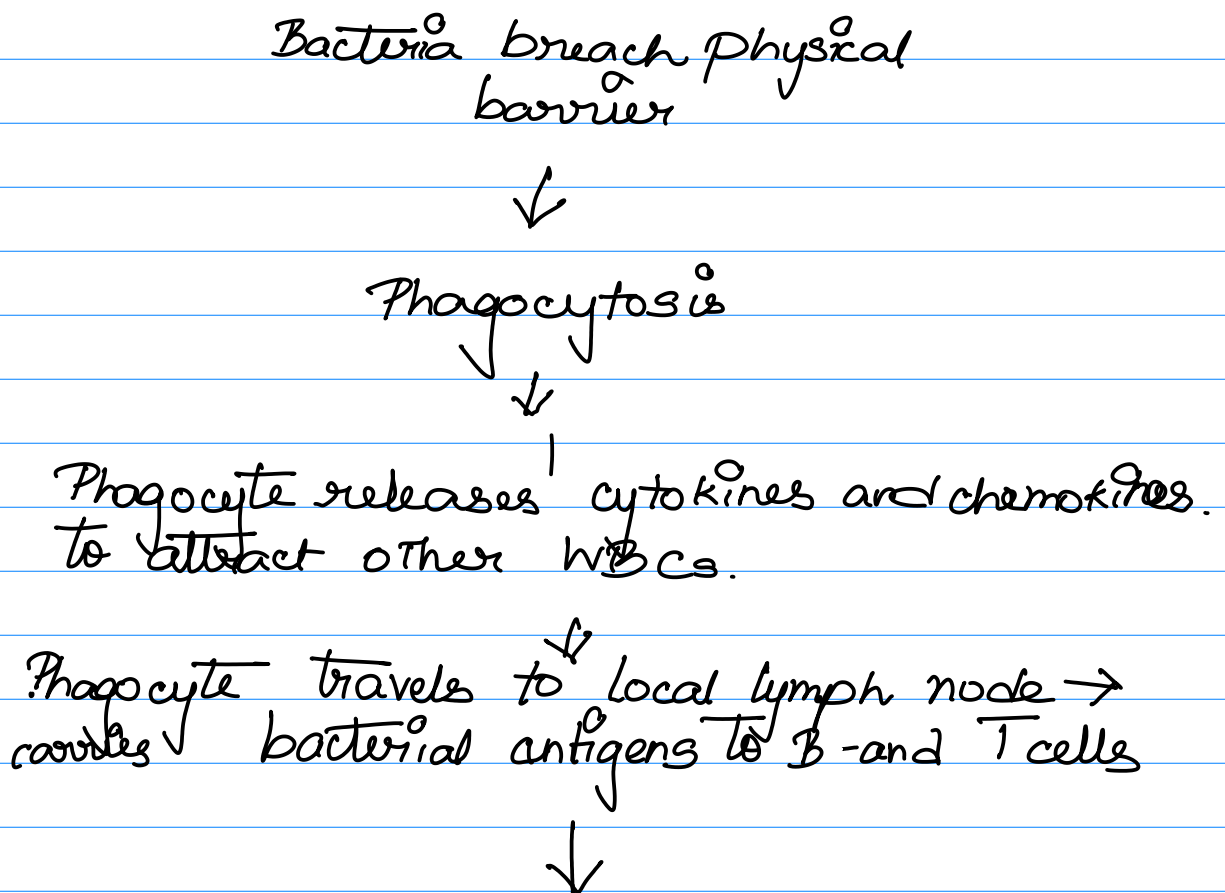 Bacteria breach physical
barrier
↓
Phagocytosis
↓
Phagocyte releases cytokines and chemokines.
to attract other WBCs.
↓
Phagocyte travels to local lymph node →
carries bacterial antigens to B-and T cells
↓